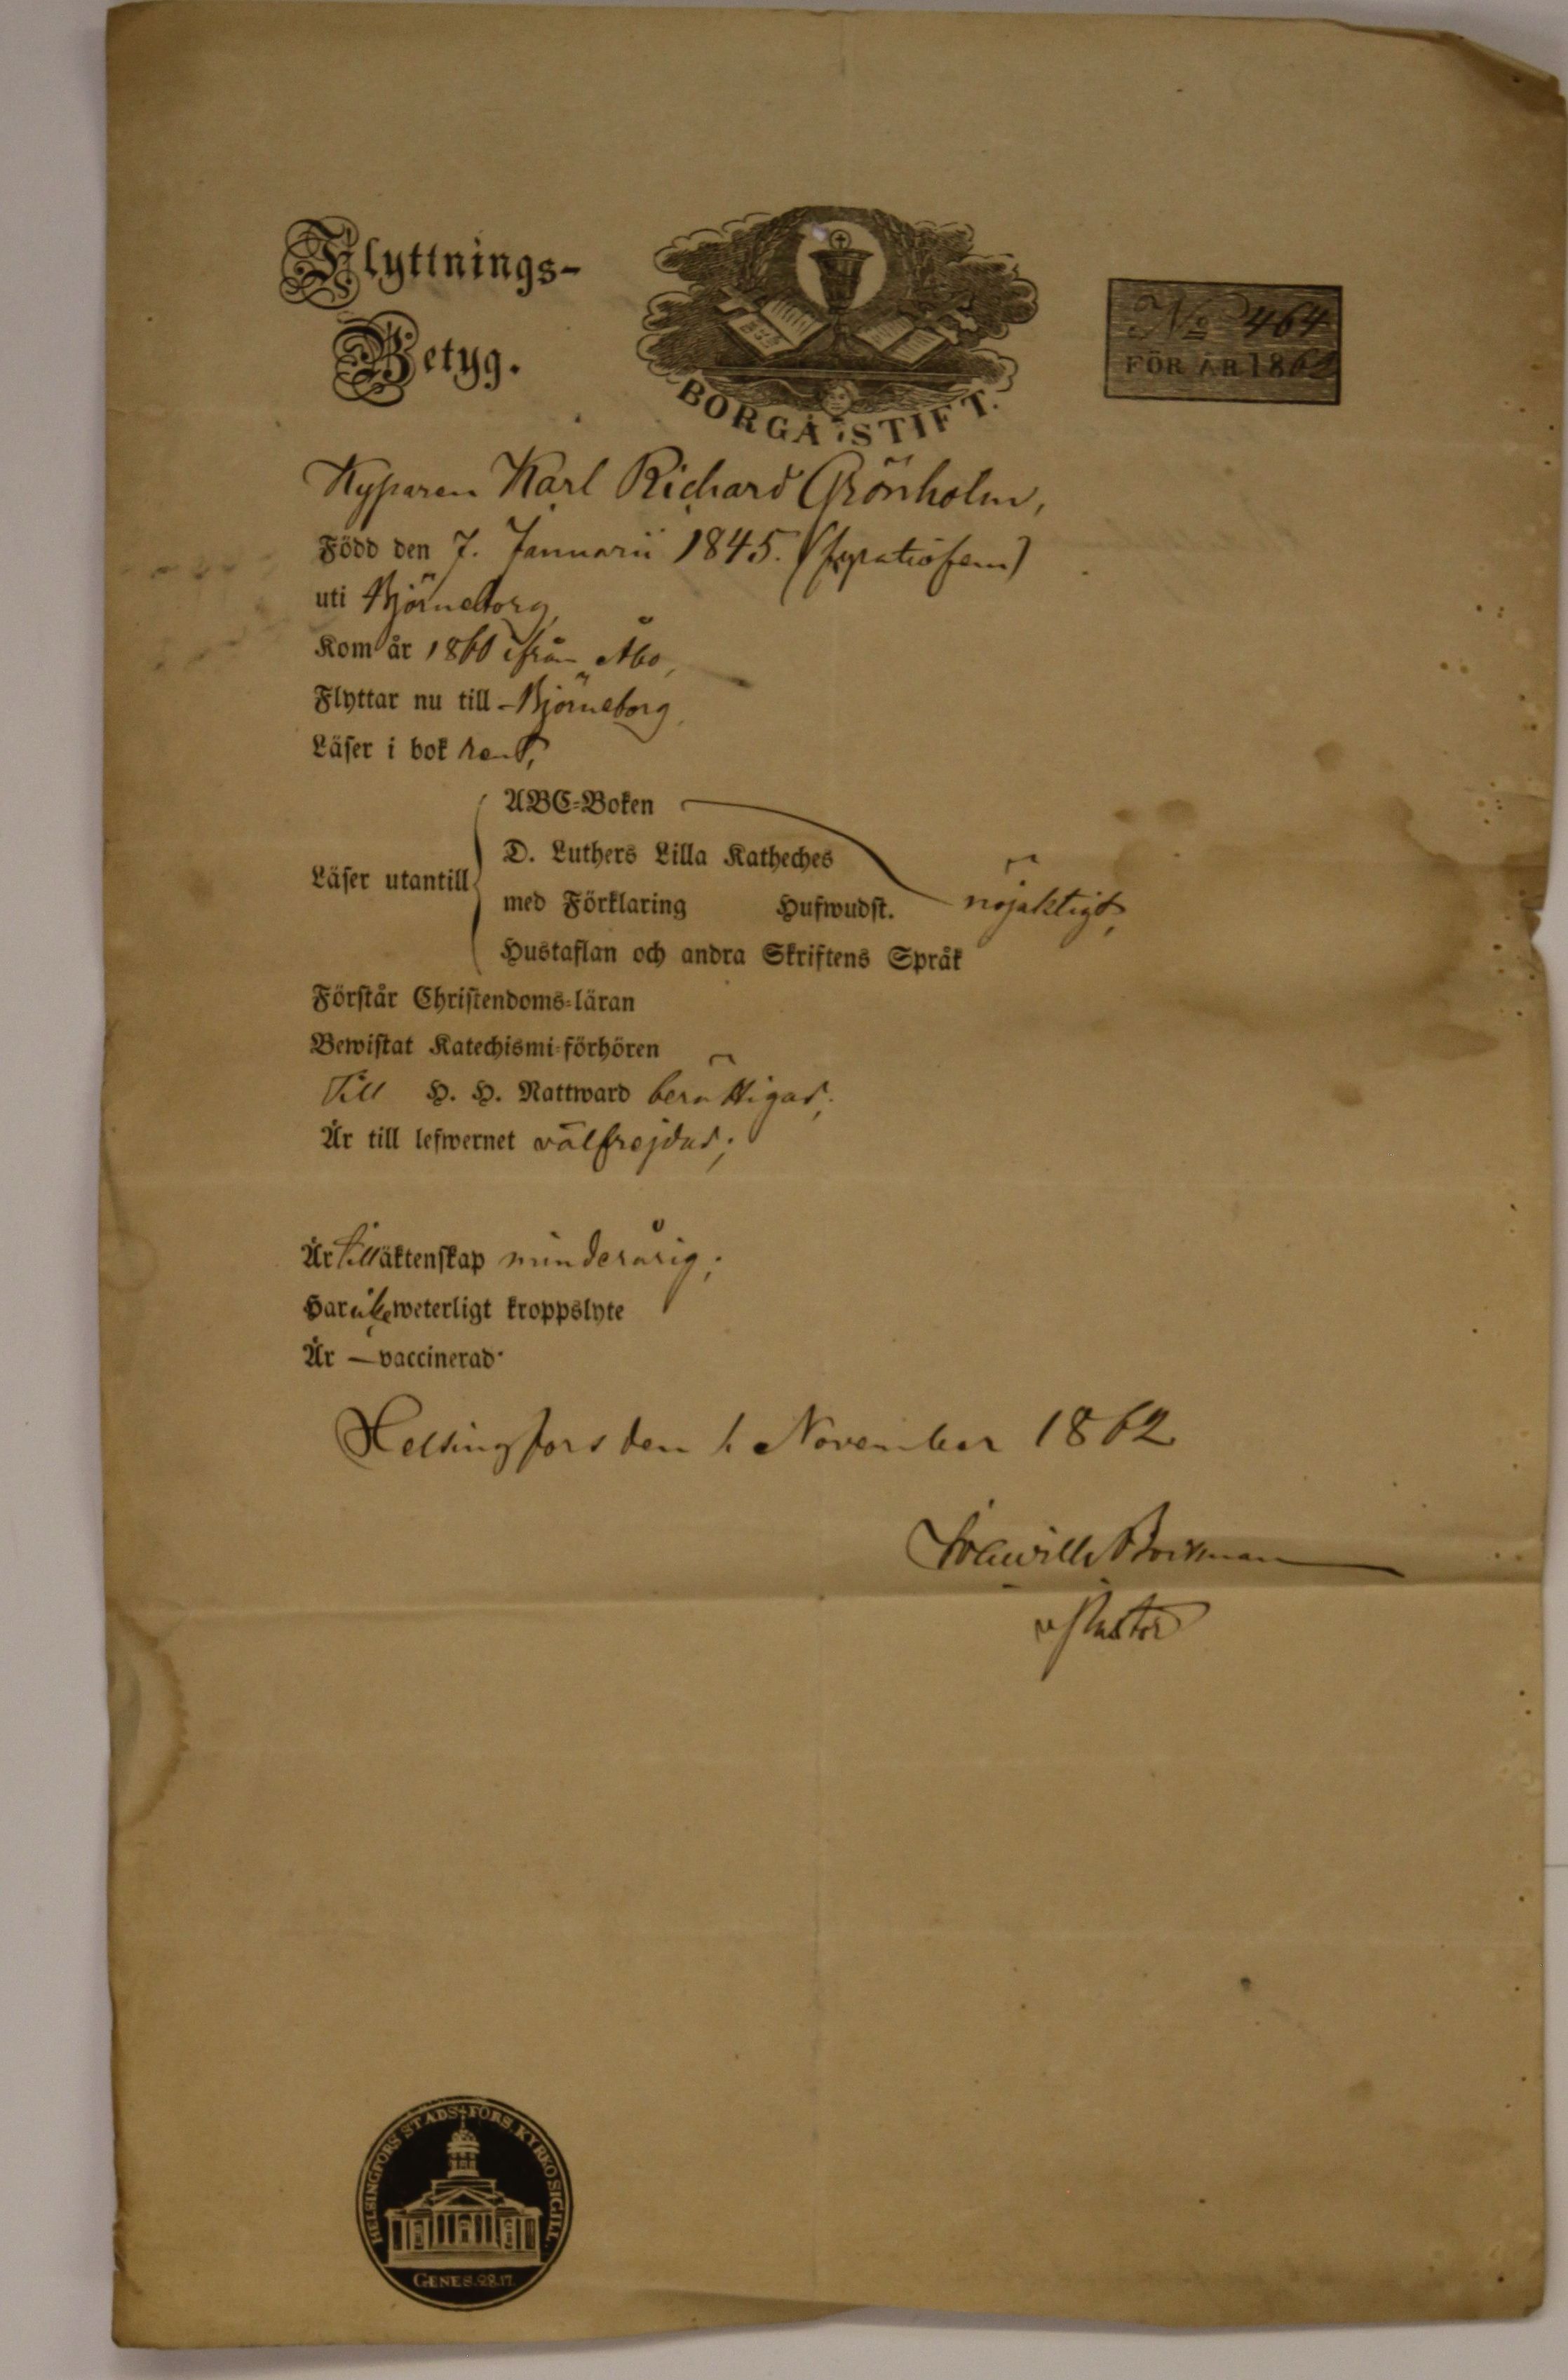 Flyttnings-
Betyg.
BORGÅ STIFT.
No 464
FÖR ÅR 1862
Kyparen Karl Richard Grönholm,
Född den 7. Januarii 1845. (fyratiofem)
uti Björneborg,
Kom år 1860 ifrån Åbo,
Flyttar nu till Björneborg,
Läser i bok rent,
Läser utantill
ABC-Boken
D. Luthers Lilla Katheches
med Förklaring Hufwudst. nöjaktigt,
Hustaflan och andra Skriftens Språk
Förstår Christendoms-läran
Bewistat Katechismi-förhören
Till H. H. Nattward berättigad;
Är till lefwernet välfrejdad;
Är till äktenskap minderårig;
Har icke weterligt kroppslyte
Är — vaccinerad.
Helsingfors den 1. November 1862
v Pastor
HELSINGFORS STADS FÖRS. KYRKO SIGILL.
GENES. 28.17.